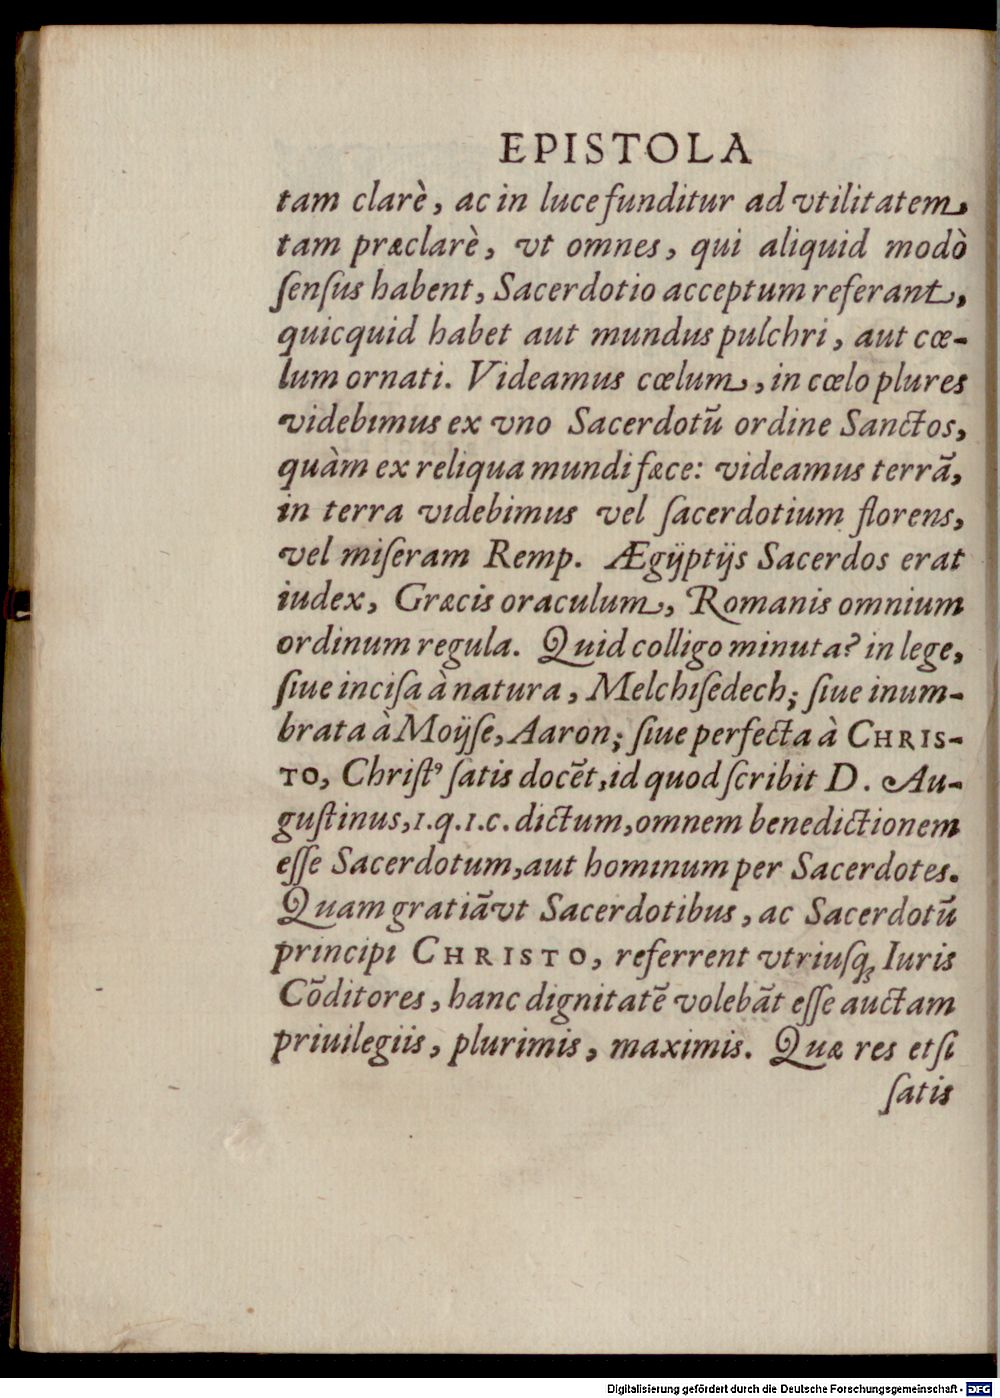 EPISTOLA
tam clarè, ac in luce funditur ad vtilitatem
tam præclarè, vt omnes, qui aliquid modò
ſenſus habent, Sacerdotio acceptum referant,
quicquid habet aut mundus pulchri, aut cœ-
lum ornati. Videamus cœlum, in cœlo plures
videbimus ex vno Sacerdotũ ordine Sanctos,
quàm ex reliqua mundi fæce: videamus terrã,
in terra videbimus vel ſacerdotium florens,
vel miſeram Remp. Ægÿptijs Sacerdos erat
iudex, Græcis oraculum, Romanis omnium
ordinum regula. Quid colligo minuta? in lege,
ſiue inciſa à natura, Melchiſedech; ſiue inum-
brata à Moÿſe, Aaron; ſiue perfecta à CHRIS-
TO, Chriſtꝰ ſatis docẽt, id quod ſcribit D. Au-
guſtinus, 1.q.1.c. dictum, omnem benedictionem
eſſe Sacerdotum, aut hominum per Sacerdotes.
Quam gratiã vt Sacerdotibus, ac Sacerdotũ
principi CHRISTO, referrent vtriuſq; Iuris
Cõditores, hanc dignitatẽ volebãt eſſe auctam
priuilegiis, plurimis, maximis. Quæ res etſi
ſatis
Digitalisierung gefördert durch die Deutsche Forschungsgemeinschaft - DFG